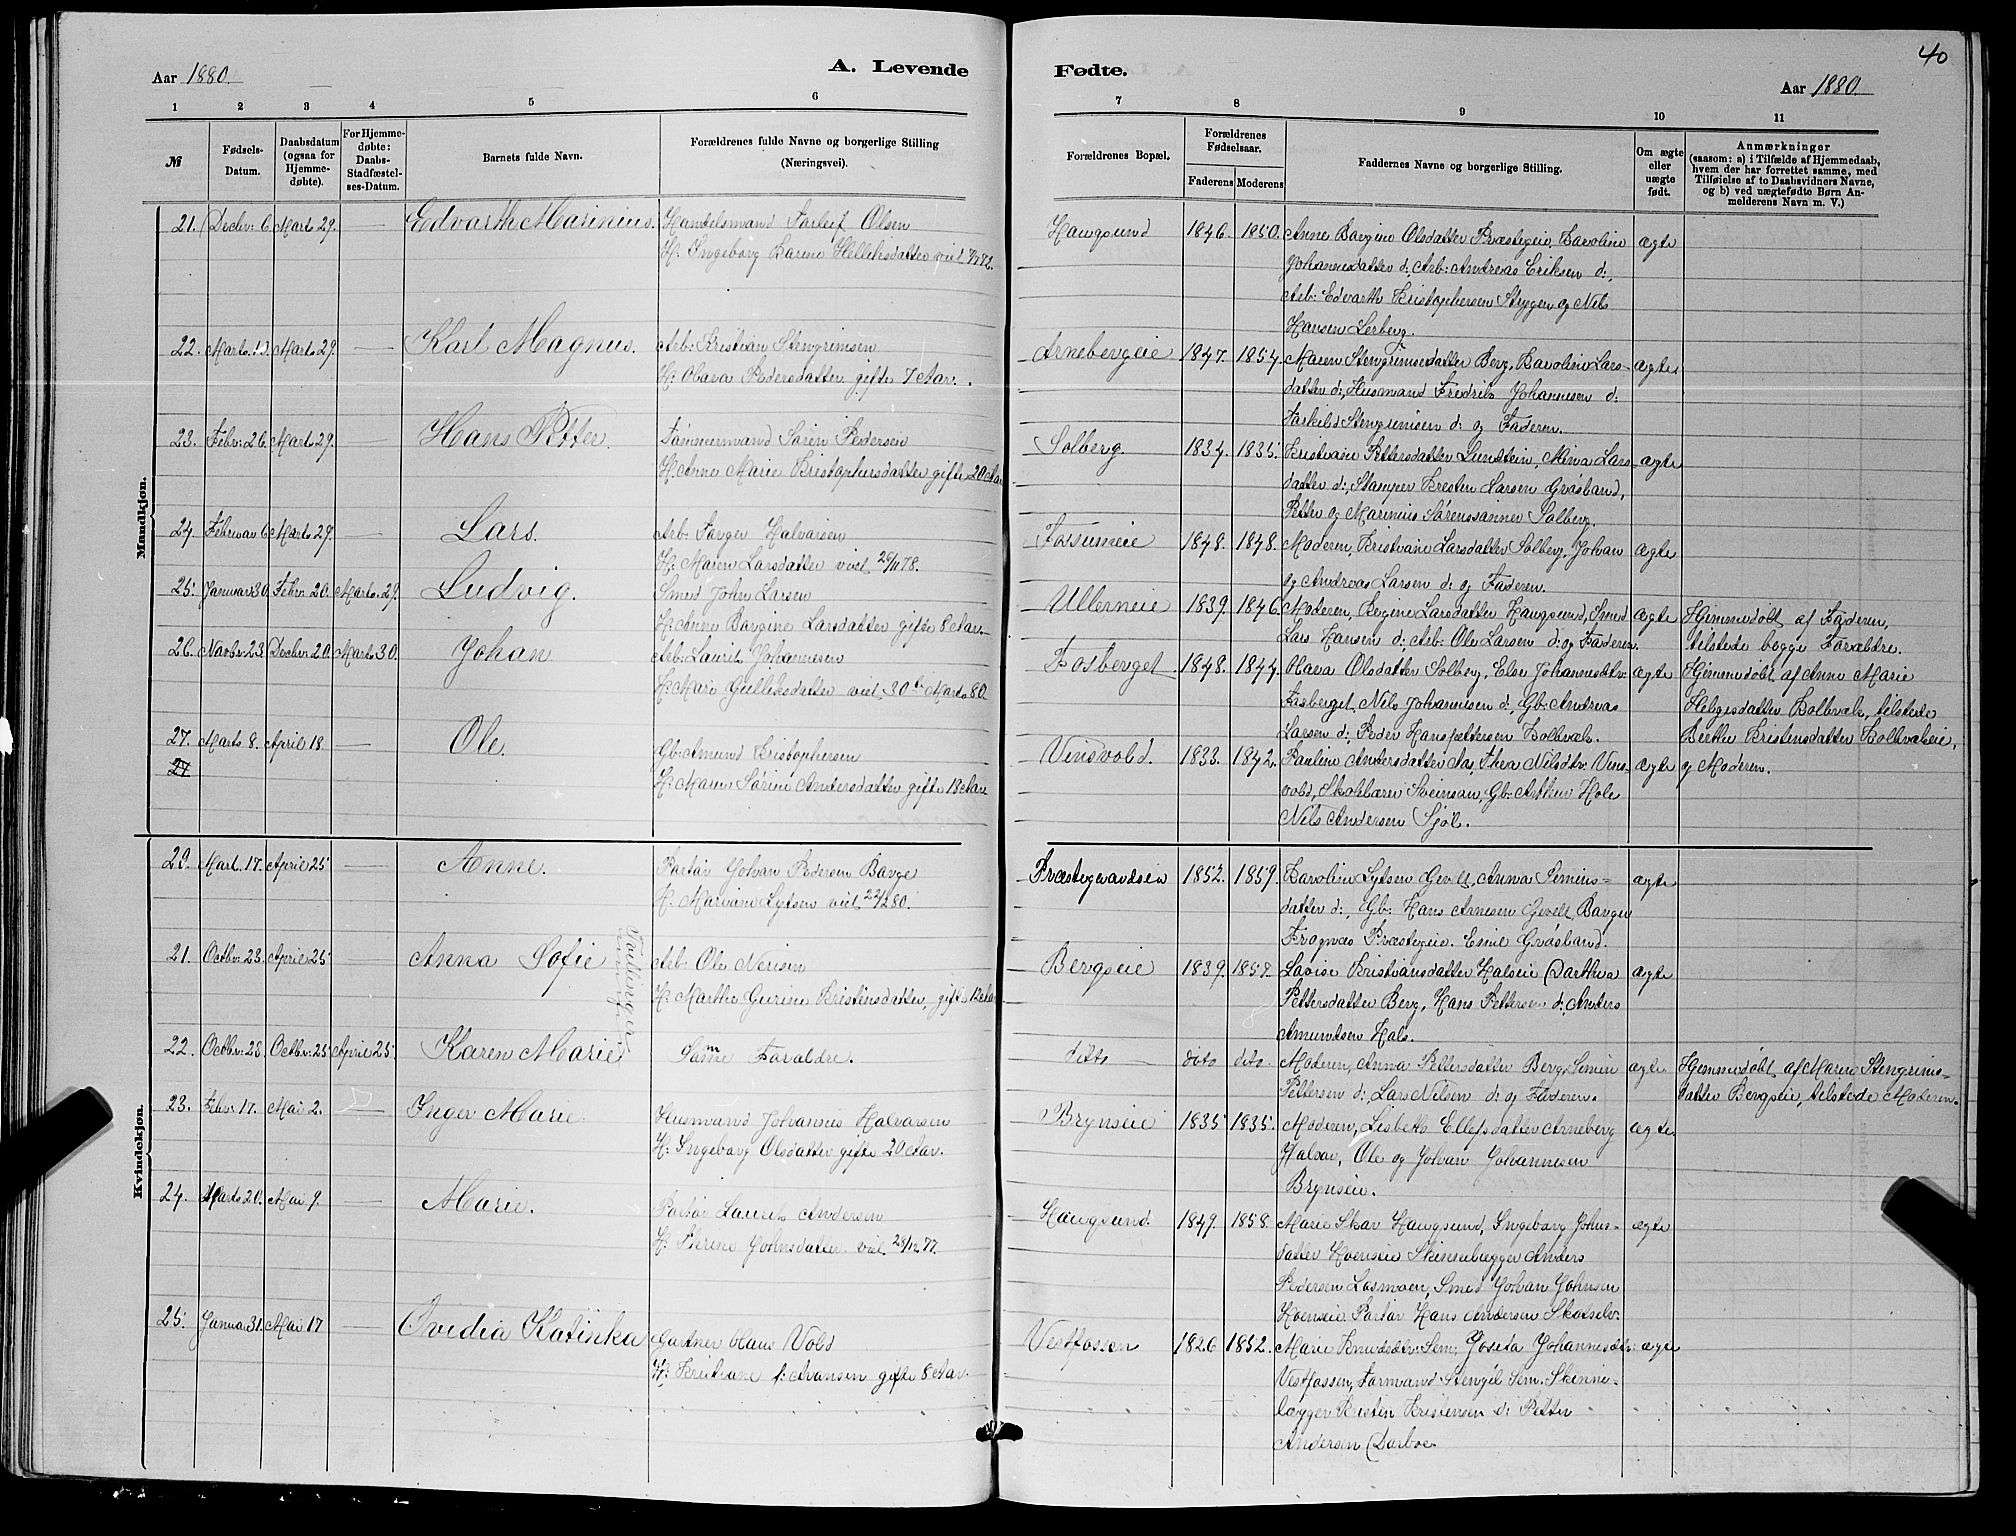 40
Aar 1880.
A. Levende
Fødte.
Aar 1880.
1 2 3 4 5 6 7 8 9 10 11
№
Fødsels-Datum.
Daabsdatum (ogsaa for Hjemme-døbte).
For Hjemme-døbte: Daabs-Stadfæstel-ses-Datum.
Barnets fulde Navn.
Forældrenes fulde Navne og borgerlige Stilling
(Næringsvei).
Forældrenes Bopæl.
Forældrenes Fødselsaar.
Faderens Moderens
Faddernes Navne og borgerlige Stilling.
Om ægte eller uægte født.
Anmærkninger
(saasom: a) i Tilfælde af Hjemmedaab,
hvem der har forrettet samme, med
Tilføielse af to Daabsvidners Navne,
og b) ved uægtefødte Børn An-
melderens Navn m. V.)
Mandkjøn.
21. Decbr: 6. Marts 29. Edvarth Marinius. Handelsmand Tarleif Olsen
H: Ingeborg Karine Helleksdatter viet
Haugsund 1846. 1850. Anne Bargine Olsdatter Præstegeie, Karoline ægte
Johannesdatter d:, Arb: Andreas Eriksen d:,
Arb: Edvarth Kristophersen Strygen og Nils
Hansen Lerberg.
22. Marts Marts 29. Karl Magnus. Arb: Kristian Stengrimsen
H: Olava Pedersdatter gifte 7 Aar.
Arnebergeie 1847. 1854. Maren Stengrimsdatter Berg, Karoline Lars- ægte
datter d:, Husmand Fredrik Johannesen d:
Tarkild Stengrimsen d: og Faderen.
23. Febr: 26. Marts 29. Hans Petter. Tømmermand Søren Pedersen
H: Anne Marie Kristophersdatter gifte 20 Aar
Solberg. 1834. 1835. Kristiane Pettersdatter Lundstein, Mina Lars- ægte
datter d:, Stamper Kresten Larsen Gråsland,
Petter og Marinius Sørenssønner Solberg.
24. Februar 6. Marts 29. Lars. Arb: Torger Halvorsen
H: Maren Larsdatter viet 26/11 78.
Fossumeie 1848. 1848. Moderen, Kristiane Larsdatter Solberg, Johan ægte
og Andreas Larsen d: og Faderen.
25. Januar 30. Febr. 20. Marts. 29. Ludvig. Smed John Larsen
H: Anne Bargine Larsdatter gifte 8 Aar.
Ullerneie 1839. 1846. Moderen, Bergine Larsdatter Haugsund, Smed ægte Hjemmedøbt af Faderen,
Lars Hansen d:, Arb: Ole Larsen d: og Faderen. tilstede begge Forældre.
26. Novbr: 23. Decbr. 20. Marts 30. Johan Arb: Laurits Johannesen
H: Mari Gulleksdatter viet 30te Marts 80.
Fosberget 1848. 1844. Olava Olsdatter Solberg, Else Johannesdtr. ægte Hjemmedøbt af Anne Marie
Fosberget, Nils Johannesen d:, Gb: Andreas Helgesdatter Kolbræk, tilstede
Larsen d:, Peder Hanspettersen Kolbræk. Berthe Kristensdatter Kolbrækeie,
27. Marts 8. April 18. Ole. Gb: Amund Kristophersen
27
H: Maren Sørine Andersdatter gifte 13 Aar
Vinsvold. 1833. 1842. Pauline Andersdatter Aas, Thea Nilsdtr. Vins- ægte og Moderen.
vold, Skolelærer Sveinsan, Gb: Arthur Hole
Nils Andersen Sjøl.
Kvindekjøn.
20. Mart. 17. April 25 Anne. Partør Johan Pedersen Barge
H: Mariane Lytsen viet 22/2 80.
Præstegaardseie 1852. 1859. Karoline Lytsen Gevelt, Anna Simens- ægte
datter d:, Gb: Hans Arnesen Gevelt, Barger
Fragnæs Præstegeie. Emil Gråsland.
21. Octbr. 23. April 25 Anna Sofie Arb: Ole Nerisen
H: Marthe Gurine Kristensdatter, gifte 12 Aar
Tvillinger
Bergseie 1839. 1857. Lovise Kristiansdatter Halseie, Darthea ægte
Pettersdatter Berg, Hans Pettersen d:, Anders
Amundsen Hals.
22. Octbr. 23. Octbr: 25 April 25. Karen Marie Samme Forældre.
ditto dito dito. Moderen, Anna Pettersdatter Berg, Simen ægte Hjemmedøbt af Maren Stengrims-
Pettersen d:, Lars Nilsen d: og Faderen. datter Bergseie, tilstede Moderen.
23. Febr. 17. Mai 2. Inger Marie Husmand Johannes Halvorsen
H: Ingeborg Olsdatter gifte 20 Aar.
Brynseie 1835 1835. Moderen, Lisbeth Ellefsdatter Arneberg ægte.
Halvor, Ole og Johan Johannesen
Brynseie.
24. Marts 20. Mai 9. Marie. Partør Laurits Andersen
H: Therine Johnsdatter viet 28/12 77.
Haugsund. 1849. 1858. Marie Skar Haugsund, Ingeborg Johns- ægte
datter Hoenseie, Skinnelægger Anders
Pedersen Losmoen, Smed Johan Johnsen
Hoenseie. Partør Hans Andersen Skotselv.
25. Januar 31. Mai 17 Ovidia Katinka Gartner Hans Vold
H: Kristiane f: Aronsen gifte 8 Aar.
Vestfossen 1826 1852. Marie Knudsdtr: Sem, Josefa Johannesdtr: ægte
Vestfossen, Formand Stengel Sem. Skinne-
lægger Kristen Kristensen d: Petter
Andersen Darboe